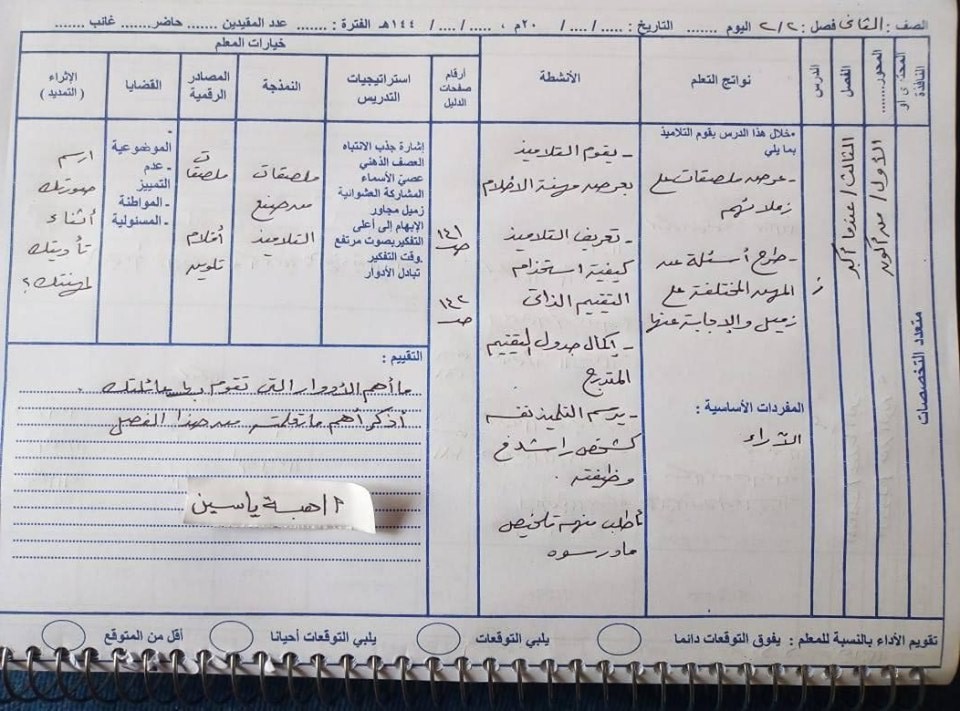 الصف : الثاني فصل : ٢/٢ اليوم ....... التاريخ : ..... /.... /.... ٢٠م ، ..... /.... /.... ١٤٤هـ الفترة : ....... عدد المقيدين ........ حاضر....... غائب .......
خيارات المعلم
النافذة
المحور.......
الفصل
الدرس
نواتج التعلم
الأنشطة
أرقام صفحات الدليل
استراتيجيات التدريس
النمذجة
المصادر الرقمية
القضايا
الإثراء ( التمديد )
متعدد التخصصات
الأول / من أكون
الثالث / عندما أكبر
خلال هذا الدرس يقوم التلاميذ
بما يلي
- عرض ملصقات على
زملائهم
- طرح أسئلة عن
المهن المختلفة على
زميل والإجابة عنها
المفردات الأساسية :
الآراء
- يقوم التلاميذ
بعرض مهنة الأحلام
- تعريف التلاميذ
كيفية استخدام
التقييم الذاتى
- إكمال جدول التقييم
المتدرج
- يرسم التلميذ نفسه
كشخص راشد فى
وظيفته .
أطلب منهم تلخيص
ما درسوه
ص ١٤١
ص ١٤٢
إشارة جذب الانتباه
العصف الذهني
عصيّ الأسماء
المشاركة العشوائية
زميل مجاور
الإبهام إلى أعلى
التفكير بصوت مرتفع
وقت التفكير.
تبادل الأدوار
ملصقات
من صنع
التلاميذ
ملصقات
أقلام
تلوين
-
الموضوعية
- عدم
التمييز
- المواطنة
- المسئولية
ارسم
صورتك
أثناء
تأديتك
لمهنتك ؟
التقييم :
ما أهم الأدوار التى تقوم بها عائلتك .
أذكر أهم ما تعلمته من هذا الفصل
أ / هبة ياسين
تقويم الأداء بالنسبة للمعلم : يفوق التوقعات دائما
يلبي التوقعات
يلبي التوقعات أحيانا
أقل من المتوقع